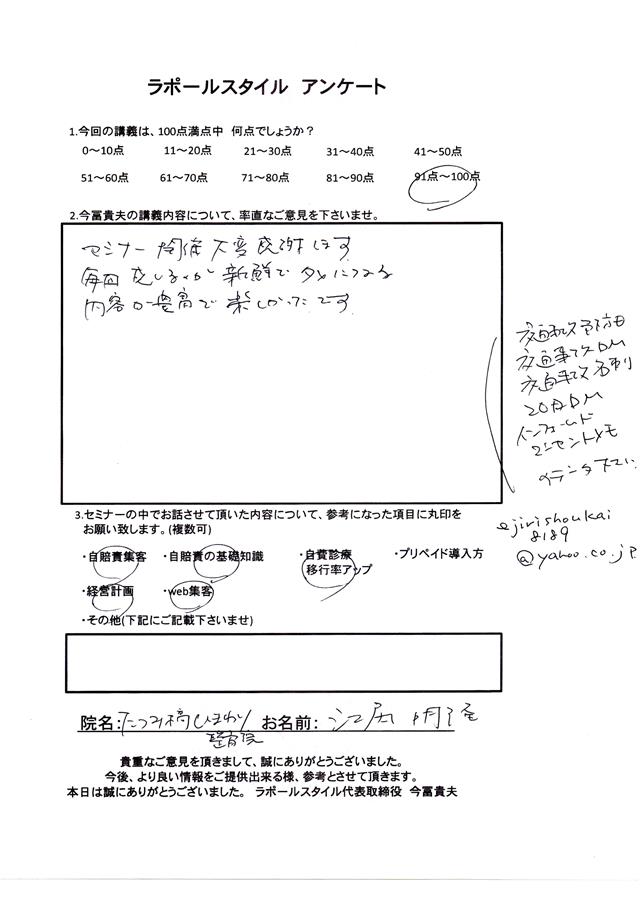 ラポールスタイル アンケート
1.今回の講義は、100点満点中 何点でしょうか?
0～10点 11～20点 21～30点 31～40点 41～50点
51～60点 61～70点 71～80点 81～90点 91点～100点
2.今冨貴夫の講義内容について、率直なご意見を下さいませ。
セミナー開催大変感謝します
毎回 新鮮で タメになる
内容が豊富で 楽しかったです
交通事故予防
交通事故DM
交通事故名刺
20日DM
インフォームド
コンセントメモ
データ下さい
ejirishoukai
8189
@yahoo.co.jp
3.セミナーの中でお話させて頂いた内容について、参考になった項目に丸印を
お願い致します。(複数可)
・自賠責集客 ・自賠責の基礎知識 ・自費診療 ・プリペイド導入方
移行率アップ
・経営計画 ・web集客
・その他(下記にご記載下さいませ)
院名:たつみ橋ひまわり お名前: 江尻
整骨院
貴重なご意見を頂きまして、誠にありがとうございました。
今後、より良い情報をご提供出来る様、参考とさせて頂きます。
本日は誠にありがとうございました。 ラポールスタイル代表取締役 今冨貴夫